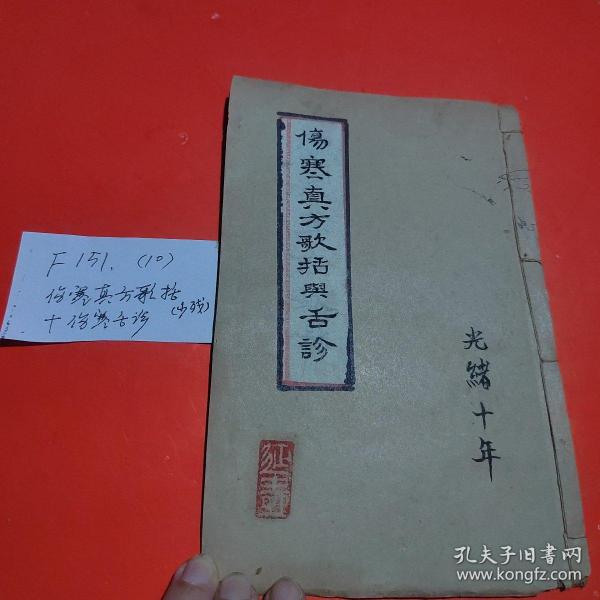 傷寒真方歌括與舌診
光緒十年
F 151. (10)
伤寒真方歌括
十伤寒舌诊 (少残)
孔夫子旧书网
www.kongfz.com